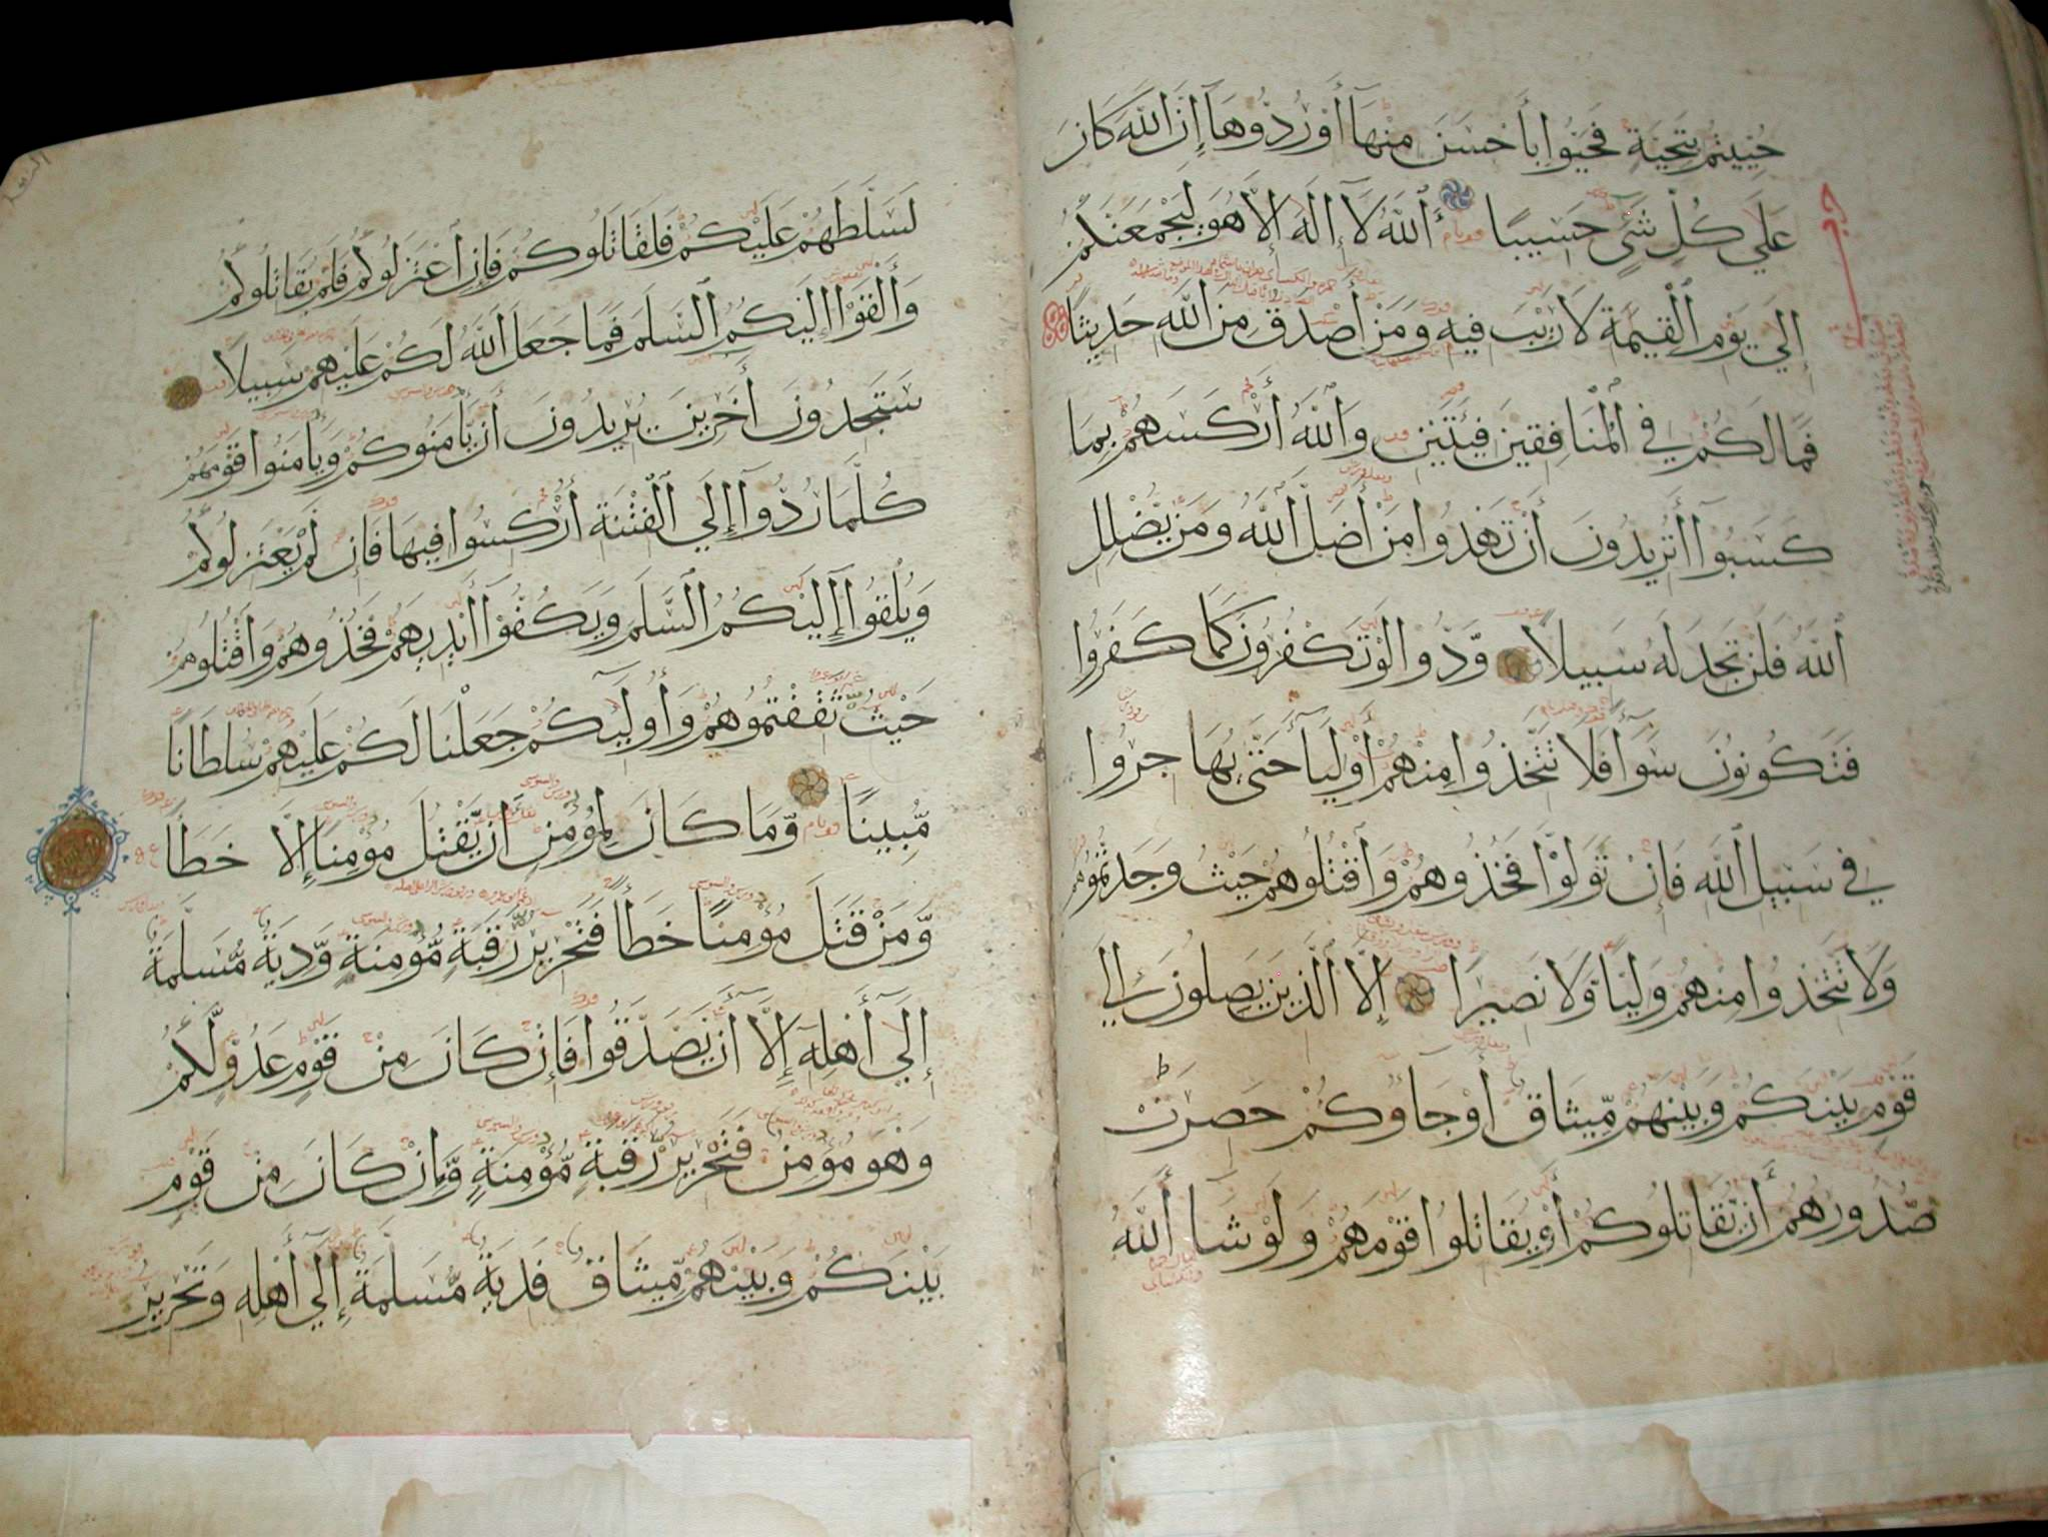 حُيِّيتُم بِتَحِيَّةٍ فَحَيُّوا بِأَحْسَنَ مِنْهَآ أَوْ رُدُّوهَآ إِنَّ اللَّهَ كَانَ
عَلَي كُلِّ شَيْءٍ حَسِيبًا ٱللَّهُ لَآ إِلَهَ إِلَّا هُوَ لَيَجْمَعَنَّكُمْ
إِلَي يَوْمِ ٱلْقِيَمَةِ لَا رَيْبَ فِيهِ وَمَنْ أَصْدَقُ مِنَ اللَّهِ حَدِيثًا
فَمَا لَكُمْ فِي الْمُنَافِقِينَ فِئَتَيْنِ وَاللَّهُ أَرْكَسَهُمْ بِمَا
كَسَبُوٓا أَتُرِيدُونَ أَنْ تَهْدُوا مَنْ أَضَلَّ اللَّهُ وَمَن يُّضْلِلِ
ٱللَّهُ فَلَنْ تَجِدَ لَهُ سَبِيلًا وَدُّوا لَوْ تَكْفُرُونَ كَمَا كَفَرُوا
فَتَكُونُونَ سَوَآءً فَلَا تَتَّخِذُوا مِنْهُمْ أَوْلِيَآءَ حَتَّى يُهَاجِرُوا
فِي سَبِيلِ اللَّهِ فَإِنْ تَوَلَّوْا فَخُذُوهُمْ وَٱقْتُلُوهُمْ حَيْثُ وَجَدْتُمُوهُمْ
وَلَا تَتَّخِذُوا مِنْهُمْ وَلِيًّا وَلَا نَصِيرًا إِلَّا الَّذِينَ يَصِلُونَ إِلَي
قَوْمٍ بَيْنَكُمْ وَبَيْنَهُمْ مِّيثَاقٌ أَوْ جَآؤُكُمْ حَصِرَتْ
صُدُورُهُمْ أَن يُّقَاتِلُوكُمْ أَوْ يُقَاتِلُوا قَوْمَهُمْ وَلَوْ شَآءَ ٱللَّهُ
لَسَلَّطَهُمْ عَلَيْكُمْ فَلَقَاتَلُوكُمْ فَإِنِ ٱعْتَزَلُوكُمْ فَلَمْ يُقَاتِلُوكُمْ
وَأَلْقَوْا إِلَيْكُمُ ٱلسَّلَمَ فَمَا جَعَلَ اللَّهُ لَكُمْ عَلَيْهِمْ سَبِيلًا
سَتَجِدُونَ أَخَرِينَ يُرِيدُونَ أَن يَّأْمَنُوكُمْ وَيَأْمَنُوا قَوْمَهُمْ
كُلَّمَا رُدُّوٓا إِلَي ٱلْفِتْنَةِ أُرْكِسُوا فِيهَا فَإِن لَّمْ يَعْتَزِلُوكُمْ
وَيُلْقُوٓا إِلَيْكُمُ السَّلَمَ وَيَكُفُّوٓا أَيْدِيَهُمْ فَخُذُوهُمْ وَٱقْتُلُوهُمْ
حَيْثُ ثَقِفْتُمُوهُمْ وَأُوْلَئِكُمْ جَعَلْنَا لَكُمْ عَلَيْهِمْ سُلْطَانًا
مُّبِينًا وَّمَا كَانَ لِمُؤْمِنٍ أَن يَّقْتُلَ مُؤْمِنًا إِلَّا خَطَأً
وَّمَنْ قَتَلَ مُؤْمِنًا خَطَأً فَتَحْرِيرُ رَّقَبَةٍ مُّؤْمِنَةٍ وَّدِيَةٌ مُّسَلَّمَةٌ
إِلَي أَهْلِهِ إِلَّآ أَن يَّصَّدَّقُوا فَإِنْ كَانَ مِنْ قَوْمٍ عَدُوٍّ لَّكُمْ
وَهُوَ مُؤْمِنٌ فَتَحْرِيرُ رَّقَبَةٍ مُّؤْمِنَةٍ وَّإِنْ كَانَ مِن قَوْمٍ
بَيْنَكُمْ وَبَيْنَهُمْ مِّيثَاقٌ فَدِيَةٌ مُّسَلَّمَةٌ إِلَي أَهْلِهِ وَتَحْرِيرُ